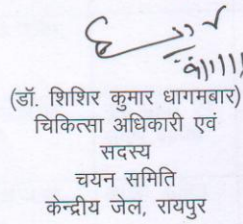 (डॉ. शिशिर कुमार धागमबार)
चिकित्सा अधिकारी एवं
सदस्य
चयन समिति
केन्द्रीय जेल, रायपुर